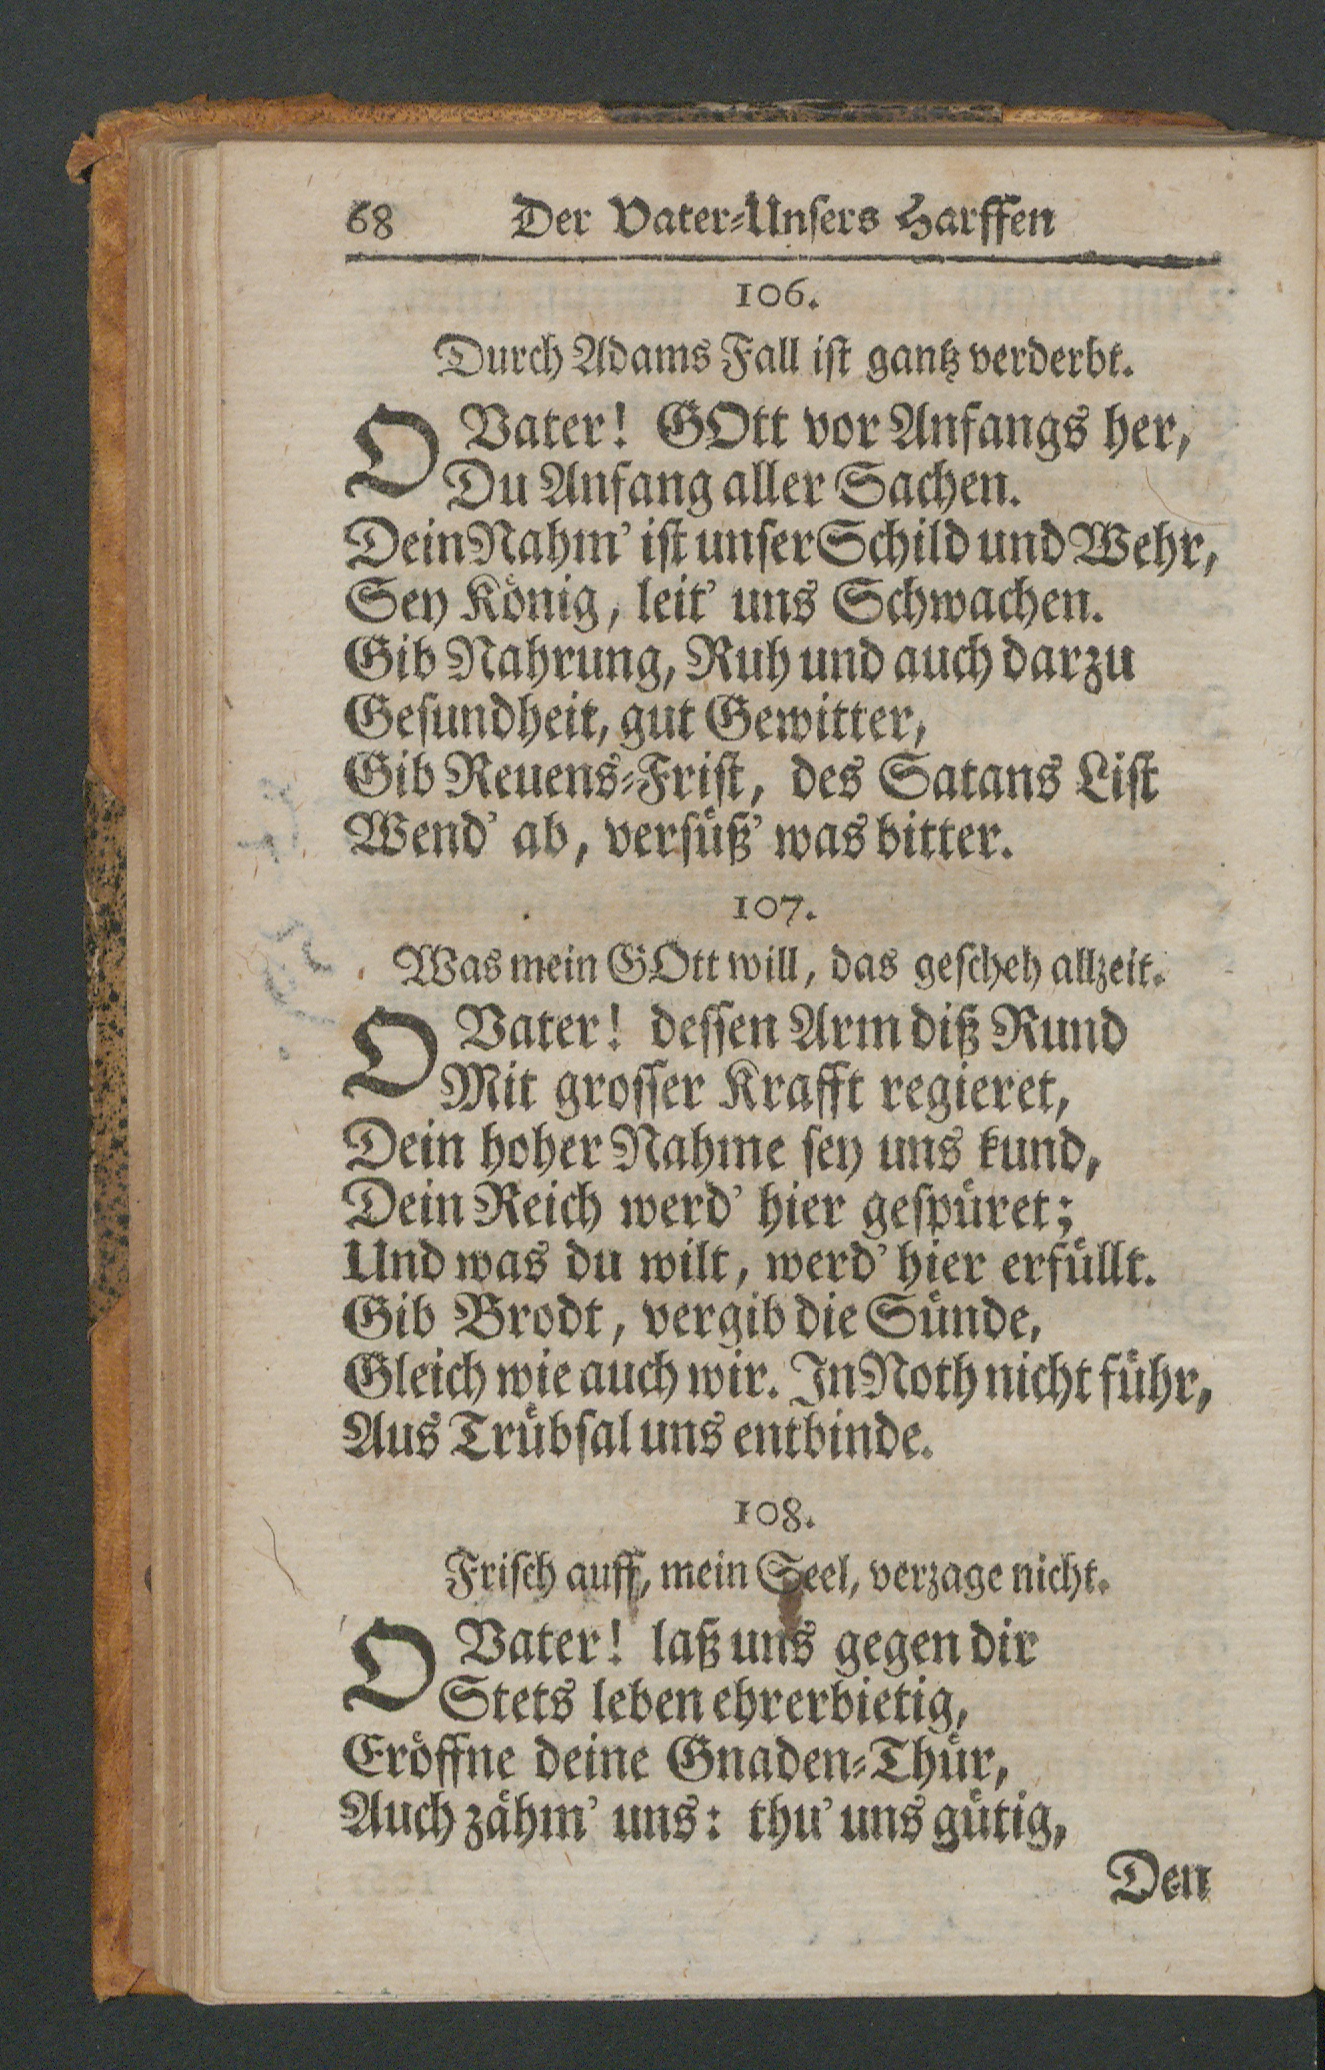 68 Der Vater-Unsers Harffen
106.
Durch Adams Fall ist gantz verderbt.
O Vater! GOtt vor Anfangs her,
Du Anfang aller Sachen.
Dein Nahm' ist unser Schild und Wehr,
Sey König, leit' uns Schwachen.
Gib Nahrung, Ruh und auch darzu
Gesundheit, gut Gewitter,
Gib Reuens-Frist, des Satans List
Wend' ab, versüß' was bitter.
107.
Was mein GOtt will, das gescheh allzeit.
O Vater! dessen Arm diß Rund
Mit grosser Krafft regieret,
Dein hoher Nahme sey uns kund,
Dein Reich werd' hier gespüret;
Und was du wilt, werd' hier erfüllt.
Gib Brodt, vergib die Sünde,
Gleich wie auch wir. In Noth nicht führ,
Aus Trübsal uns entbinde.
108.
Frisch auff, mein Seel, verzage nicht.
O Vater! laß uns gegen dir
Stets leben ehrerbietig,
Eröffne deine Gnaden-Thür,
Auch zähm' uns: thu' uns gütig,
Den